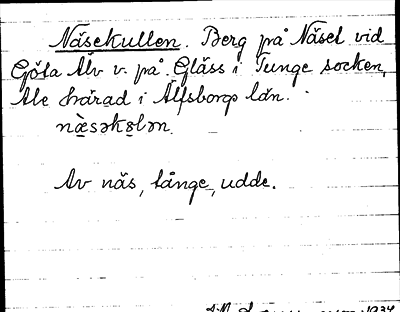 Näsekullen. Berg på Näset vid
Göta Älv v. på Gläss i Tunge socken,
Ale härad i Älfsborgs län.
næ̀sәkɞlәn.
Av näs, tånge, udde.
1934